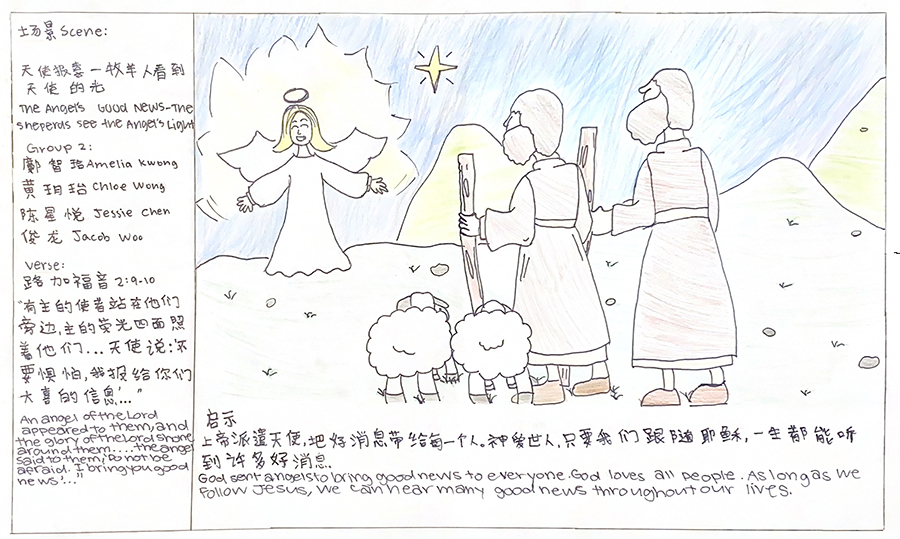 场景 Scene:
天使报喜－牧羊人看到
天使 的光
The Angel's Good News-The
sheperds see the Angel's Light
Group 2:
鄺 智 Amelia Kwong
黄 玥 Chloe Wong
陈 星 悦 Jessie Chen
俊 龙 Jacob Woo
Verse:
路 加 福 音 2:9-10
“有主的使者站在他们
旁边,主的荣光四面照
着他们...天使说:‘不
要惧怕,我报给你们
大喜的信息’...”
An angel of the Lord
appeared to them, and
the glory of the Lord shone
around them.... the angel
said to them, 'Do not be
afraid. I bring you good
news'..."
启示
上帝派遣天使,把好消息带给每一个人。神爱世人,只要我们跟随耶稣,一生都能听
到许多好消息.
God sent angels to bring good news to everyone. God loves all people. As long as we
follow Jesus, we can hear many good news throughout our lives.